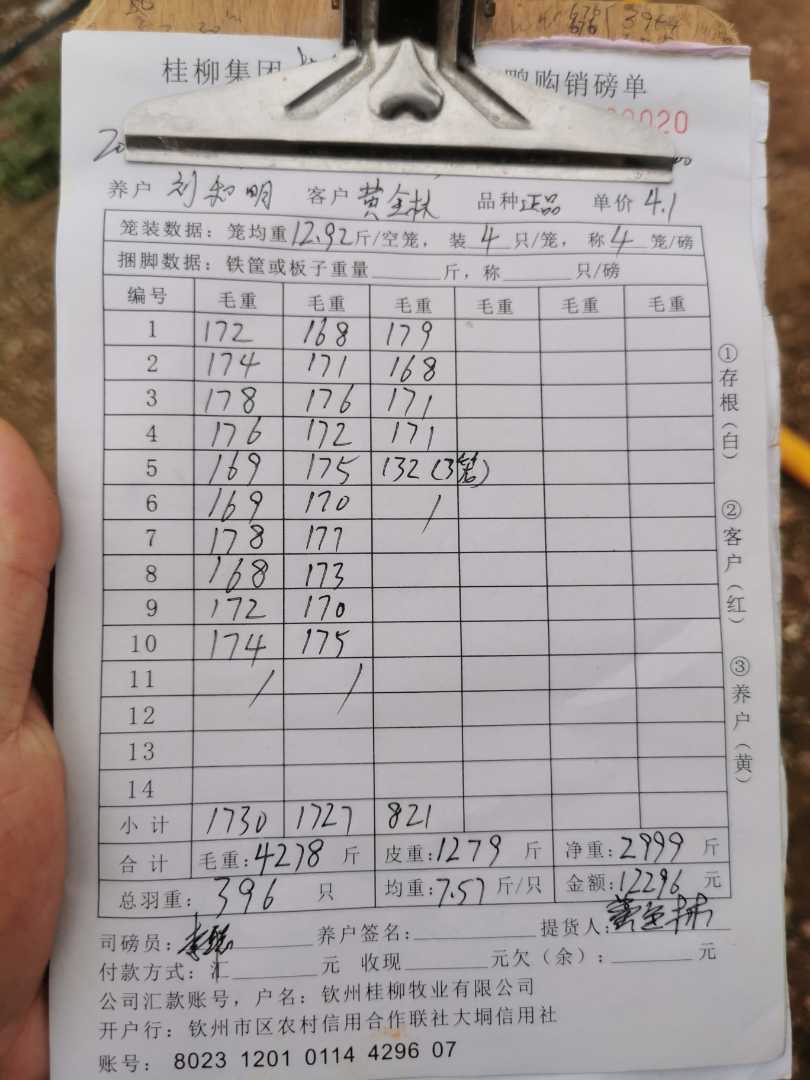 桂柳集团 鸭购销磅单
0020
20
养户 刘和明 客户 黄全林 品种 正品 单价 4.1
笼装数据：笼均重12.92斤/空笼，装4只/笼，称4笼/磅
捆脚数据：铁筐或板子重量______斤，称______只/磅
编号 毛重 毛重 毛重 毛重 毛重 毛重
1 172 168 179
2 174 171 168
3 178 176 171
4 176 172 171
5 169 175 132（3笼）
6 169 170 /
7 178 177
8 168 173
9 172 170
10 174 175
11 / /
12
13
14
小计 1730 1727 821
合计 毛重：4278斤 皮重：1279斤 净重：2999斤
总羽重：396只 均重：7.57斤/只 金额：12296元
司磅员： 养户签名：______ 提货人：
付款方式：汇______元 收现______元欠（余）：______元
公司汇款账号，户名：钦州桂柳牧业有限公司
开户行：钦州市区农村信用合作联社大垌信用社
账号：8023 1201 0114 4296 07
①存根（白）
②客户（红）
③养户（黄）